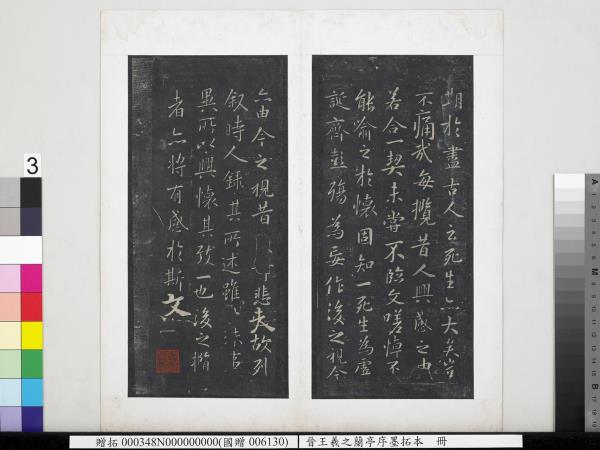 期於盡古人云死生亦大矣豈
不痛哉每攬昔人興感之由
若合一契未嘗不臨文嗟悼不
能喻之於懷固知一死生為虛
誕齊彭殤為妄作後之視今
亦由今之視昔悲夫故列
敘時人錄其所述雖世殊事
異所以興懷其致一也後之攬
者亦將有感於斯文
贈拓 000348N000000000(國贈 006130)
晉王羲之蘭亭序墨拓本 冊
3
A 1 2 3 4 5 6 M 8 9 10 11 12 13 14 15 B 17 18 19